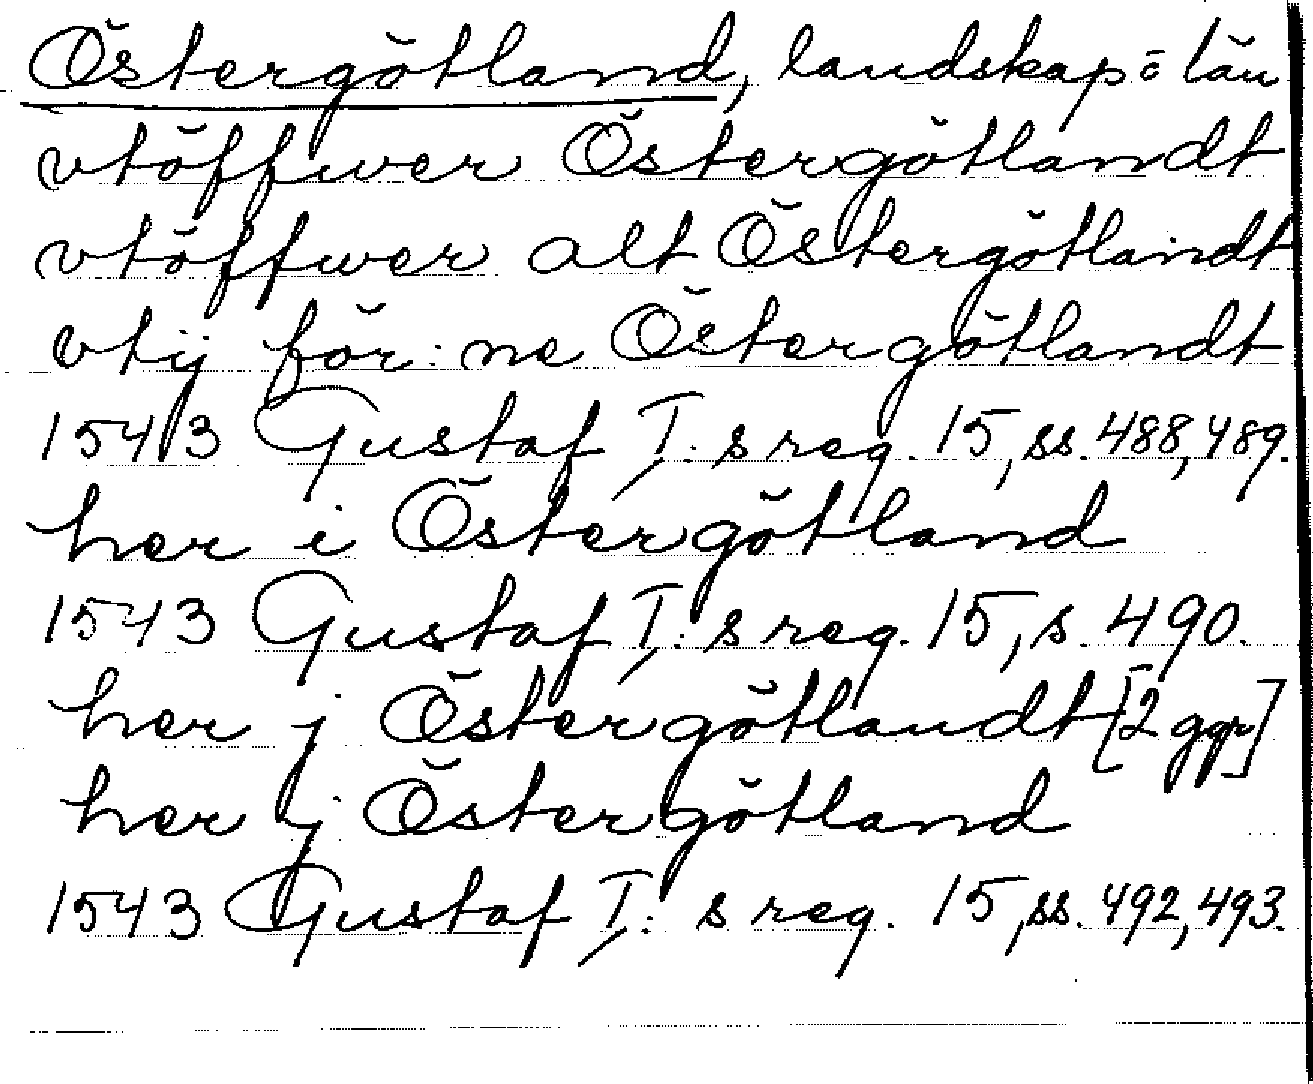 Östergötland, landskap o län
vtöffwer Östergötlandt
vtöffwer alt Östergötlandt
vtij för:ne Östergötlandt
1543 Gustaf I:s reg. 15, ss. 488, 489.
her i Östergötland
1543 Gustaf I:s reg. 15, s. 490.
her j Östergötlandt [2 ggr]
her j Östergötland
1543 Gustaf I:s reg. 15, ss. 492, 493.